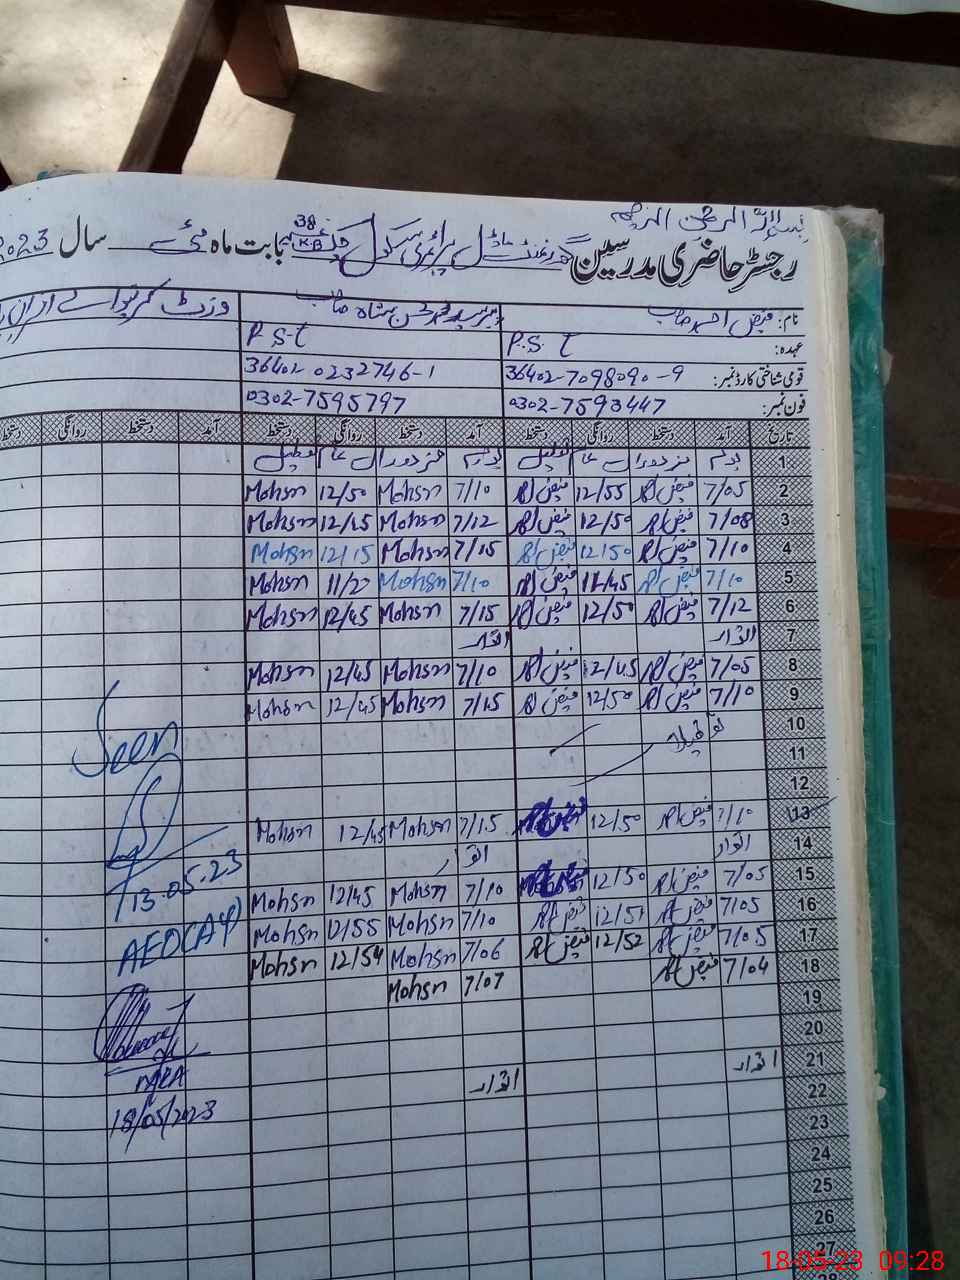 بسم اللہ الرحمن الرحیم
رجسٹر حاضری مدرسین گورنمنٹ ماڈل پرائمری سکول چک 38 K.B بابت ماہ مئی سال 2023
نام: فیض احمد صاحب
عہدہ: P.S.T P.S.T
قومی شناختی کارڈ نمبر: 36402-7098090-9 36402-0232746-1
فون نمبر: 0302-7593447 0302-7595797
تاریخ آمد دستخط روانگی دستخط آمد دستخط روانگی دستخط آمد دستخط روانگی دستخط
1 یوم مزدوراں عام تعطیل یوم مزدوراں عام تعطیل
2 7/05 فیض احمد 12/55 فیض احمد 7/10 Mohsn 12/50 Mohsn
3 7/08 فیض احمد 12/50 فیض احمد 7/12 Mohsn 12/45 Mohsn
4 7/10 فیض احمد 12/50 فیض احمد 7/15 Mohsn 12/15 Mohsn
5 7/10 فیض احمد 11/45 فیض احمد 7/10 Mohsn Mohsn
6 7/12 فیض احمد 12/50 فیض احمد 7/15 Mohsn 12/45 Mohsn
7 اتوار اتوار
8 7/05 فیض احمد 12/45 فیض احمد 7/10 Mohsn 12/45 Mohsn
9 7/10 فیض احمد 12/50 فیض احمد 7/15 Mohsn 12/45 Mohsn
10
11
12
13 7/10 فیض احمد 12/50 7/15 Mohsn 12/45 Mohsn
14 اتوار اتوار
15 7/05 فیض احمد 12/50 7/10 Mohsn 12/45 Mohsn
16 7/05 فیض احمد 12/51 فیض احمد 7/10 Mohsn 12/55 Mohsn
17 7/05 فیض احمد 12/52 فیض احمد 7/06 Mohsn 12/54 Mohsn
18 7/04 فیض احمد 7/07 Mohsn
19
20
21 اتوار اتوار
22
23
24
25
26
27
28
Seen
13.05.23
MEA
18/05/2023
18-05-23 09:28